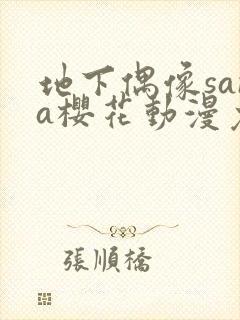 地下偶像sa
a櫻花動漫
張順橋